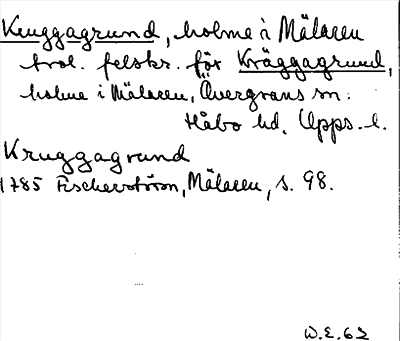 Kruggagrund, holme i Mälaren
trol. felskr. för Kräggagrund,
holme i Mälaren, Övergrans sn.
Håbo hd, Upps. l.
Kruggagrund
1785 Fischerström, Mälaren, s. 98.
W.E. 62